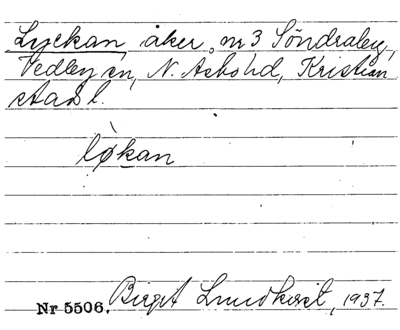 Lyckan, åker, nr 3 Söndraby,
Vedby sn, N. Åsbo hd, Kristian
stads l.
lø̀kan
Nr 5506. Birgit Lundkvist, 1937.